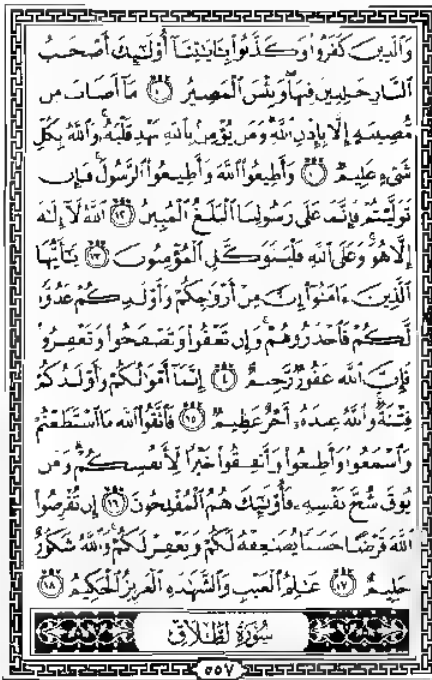 وَٱلَّذِينَ كَفَرُوا۟ وَكَذَّبُوا۟ بِـَٔايَـٰتِنَآ أُو۟لَـٰٓئِكَ أَصْحَـٰبُ
ٱلنَّارِ خَـٰلِدِينَ فِيهَا ۖ وَبِئْسَ ٱلْمَصِيرُ ١٠ مَآ أَصَابَ مِن
مُّصِيبَةٍ إِلَّا بِإِذْنِ ٱللَّهِ ۗ وَمَن يُؤْمِنۢ بِٱللَّهِ يَهْدِ قَلْبَهُۥ ۚ وَٱللَّهُ بِكُلِّ
شَىْءٍ عَلِيمٌ ١١ وَأَطِيعُوا۟ ٱللَّهَ وَأَطِيعُوا۟ ٱلرَّسُولَ ۚ فَإِن
تَوَلَّيْتُمْ فَإِنَّمَا عَلَىٰ رَسُولِنَا ٱلْبَلَـٰغُ ٱلْمُبِينُ ١٢ ٱللَّهُ لَآ إِلَـٰهَ
إِلَّا هُوَ ۚ وَعَلَى ٱللَّهِ فَلْيَتَوَكَّلِ ٱلْمُؤْمِنُونَ ١٣ يَـٰٓأَيُّهَا
ٱلَّذِينَ ءَامَنُوٓا۟ إِنَّ مِنْ أَزْوَٰجِكُمْ وَأَوْلَـٰدِكُمْ عَدُوًّا
لَّكُمْ فَٱحْذَرُوهُمْ ۚ وَإِن تَعْفُوا۟ وَتَصْفَحُوا۟ وَتَغْفِرُوا۟
فَإِنَّ ٱللَّهَ غَفُورٌ رَّحِيمٌ ١٤ إِنَّمَآ أَمْوَٰلُكُمْ وَأَوْلَـٰدُكُمْ
فِتْنَةٌ ۚ وَٱللَّهُ عِندَهُۥٓ أَجْرٌ عَظِيمٌ ١٥ فَٱتَّقُوا۟ ٱللَّهَ مَا ٱسْتَطَعْتُمْ
وَٱسْمَعُوا۟ وَأَطِيعُوا۟ وَأَنفِقُوا۟ خَيْرًا لِّأَنفُسِكُمْ ۗ وَمَن
يُوقَ شُحَّ نَفْسِهِۦ فَأُو۟لَـٰٓئِكَ هُمُ ٱلْمُفْلِحُونَ ١٦ إِن تُقْرِضُوا۟
ٱللَّهَ قَرْضًا حَسَنًا يُضَـٰعِفْهُ لَكُمْ وَيَغْفِرْ لَكُمْ ۚ وَٱللَّهُ شَكُورٌ
حَلِيمٌ ١٧ عَـٰلِمُ ٱلْغَيْبِ وَٱلشَّهَـٰدَةِ ٱلْعَزِيزُ ٱلْحَكِيمُ ١٨
سُورَةُ ٱلطَّلَاقِ
٥٥٧